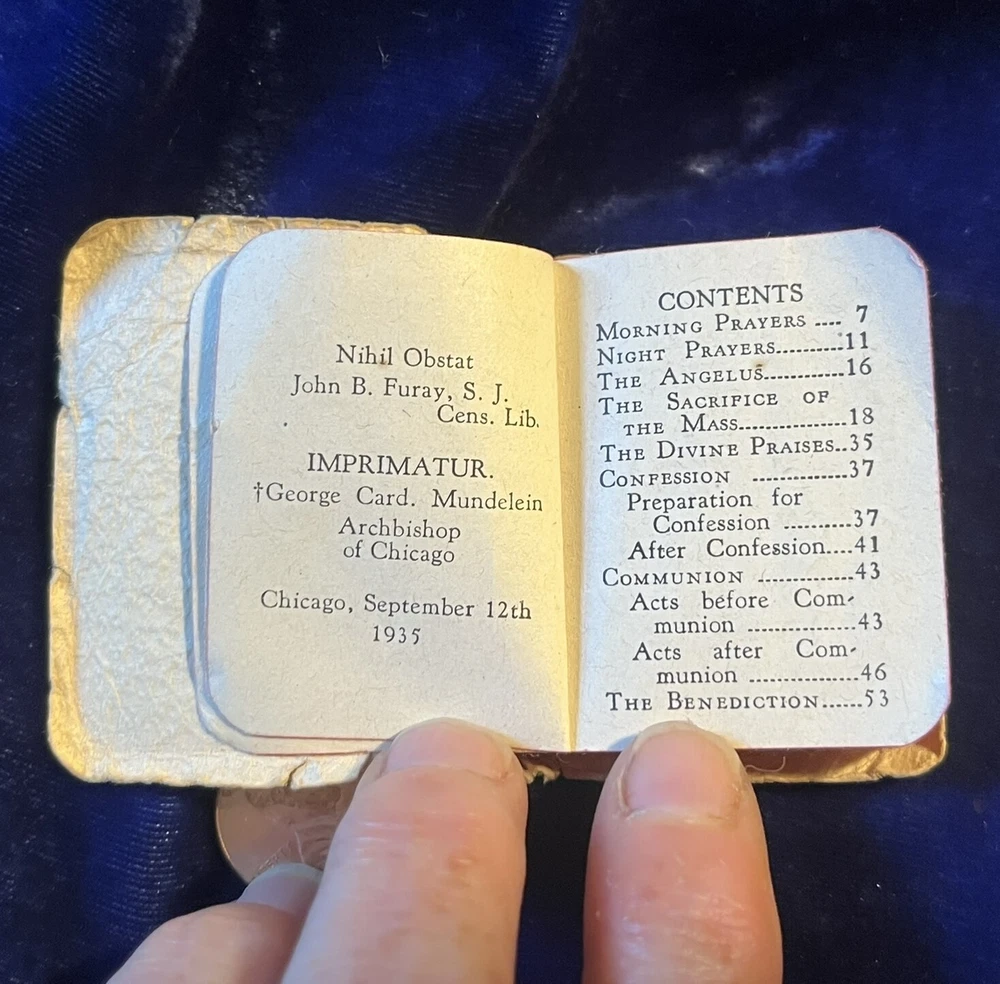 Nihil Obstat
John B. Furay, S. J.
Cens. Lib.
IMPRIMATUR.
†George Card. Mundelein
Archbishop
of Chicago
Chicago, September 12th
1935
CONTENTS
MORNING PRAYERS .... 7
NIGHT PRAYERS..........11
THE ANGELUS............16
THE SACRIFICE OF
THE MASS.................18
THE DIVINE PRAISES..35
CONFESSION ..............37
Preparation for
Confession ..........37
After Confession....41
COMMUNION ..............43
Acts before Com-
munion ................43
Acts after Com-
munion ................46
THE BENEDICTION......53